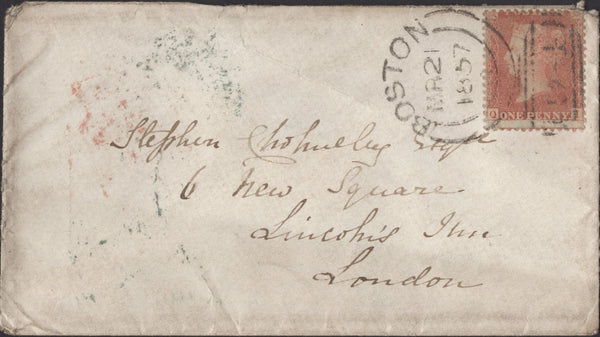 BOSTON
MR21
1857
ONE PENNY
Stephen Cholmeley Esqre
6 New Square
Lincoln's Inn
London